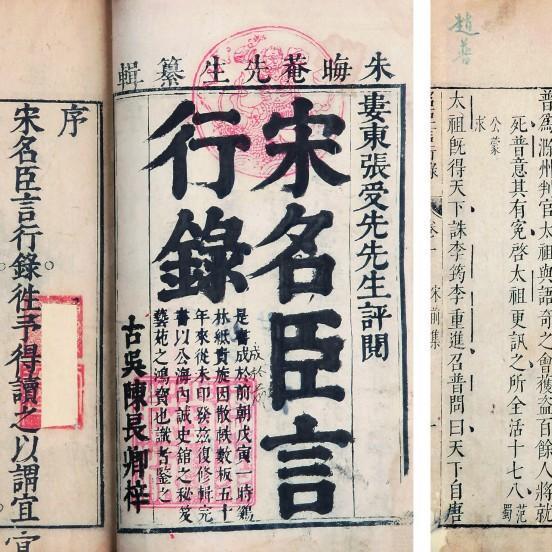 朱晦菴先生纂輯
婁東張受先先生評閱
宋名臣言
行錄
是書成於前朝戊寅一時鷄
林紙貴旋因散軼數板五十
年來從未印發茲復修輯完
書以公海內誠史舘之秘笈
藝苑之鴻寶也識者鑒之
成於前
古吳陳長卿梓
序
宋名臣言行錄徃予得讀之以謂宜
趙普
普爲滁州判官太祖與語奇之會獲盜百餘人將就
死普意其有寃啓太祖更訊之所全活十七八 范蜀
公蒙求
太祖既得天下誅李筠李重進召普問曰天下自唐
言行錄 卷一 宋前集